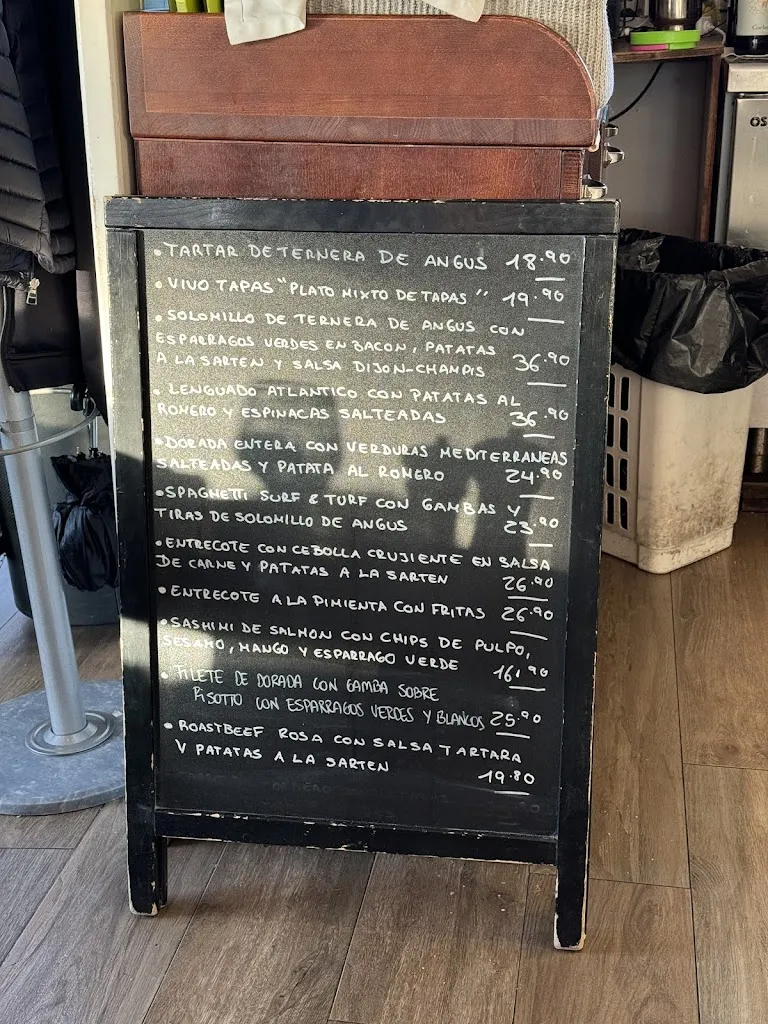 • TARTAR DE TERNERA DE ANGUS 18.90
• VIVO TAPAS "PLATO MIXTO DE TAPAS" 19.90
• SOLOMILLO DE TERNERA DE ANGUS CON
ESPARRAGOS VERDES EN BACON, PATATAS
A LA SARTEN Y SALSA DIJON-CHAMPIS 36.90
• LENGUADO ATLANTICO CON PATATAS AL
ROMERO Y ESPINACAS SALTEADAS 36.90
• DORADA ENTERA CON VERDURAS MEDITERRANEAS
SALTEADAS Y PATATA AL ROMERO 24.90
• SPAGHETTI SURF & TURF CON GAMBAS Y
TIRAS DE SOLOMILLO DE ANGUS 23.90
• ENTRECOTE CON CEBOLLA CRUJIENTE EN SALSA
DE CARNE Y PATATAS A LA SARTEN 26.90
• ENTRECOTE A LA PIMIENTA CON FRITAS 26.90
• SASHIMI DE SALMON CON CHIPS DE PULPO,
SESAMO, MANGO Y ESPARRAGO VERDE 16.90
• FILETE DE DORADA CON GAMBA SOBRE
RISOTTO CON ESPARRAGOS VERDES Y BLANCOS 25.90
• ROASTBEEF ROSA CON SALSA TARTARA
Y PATATAS A LA SARTEN 19.80